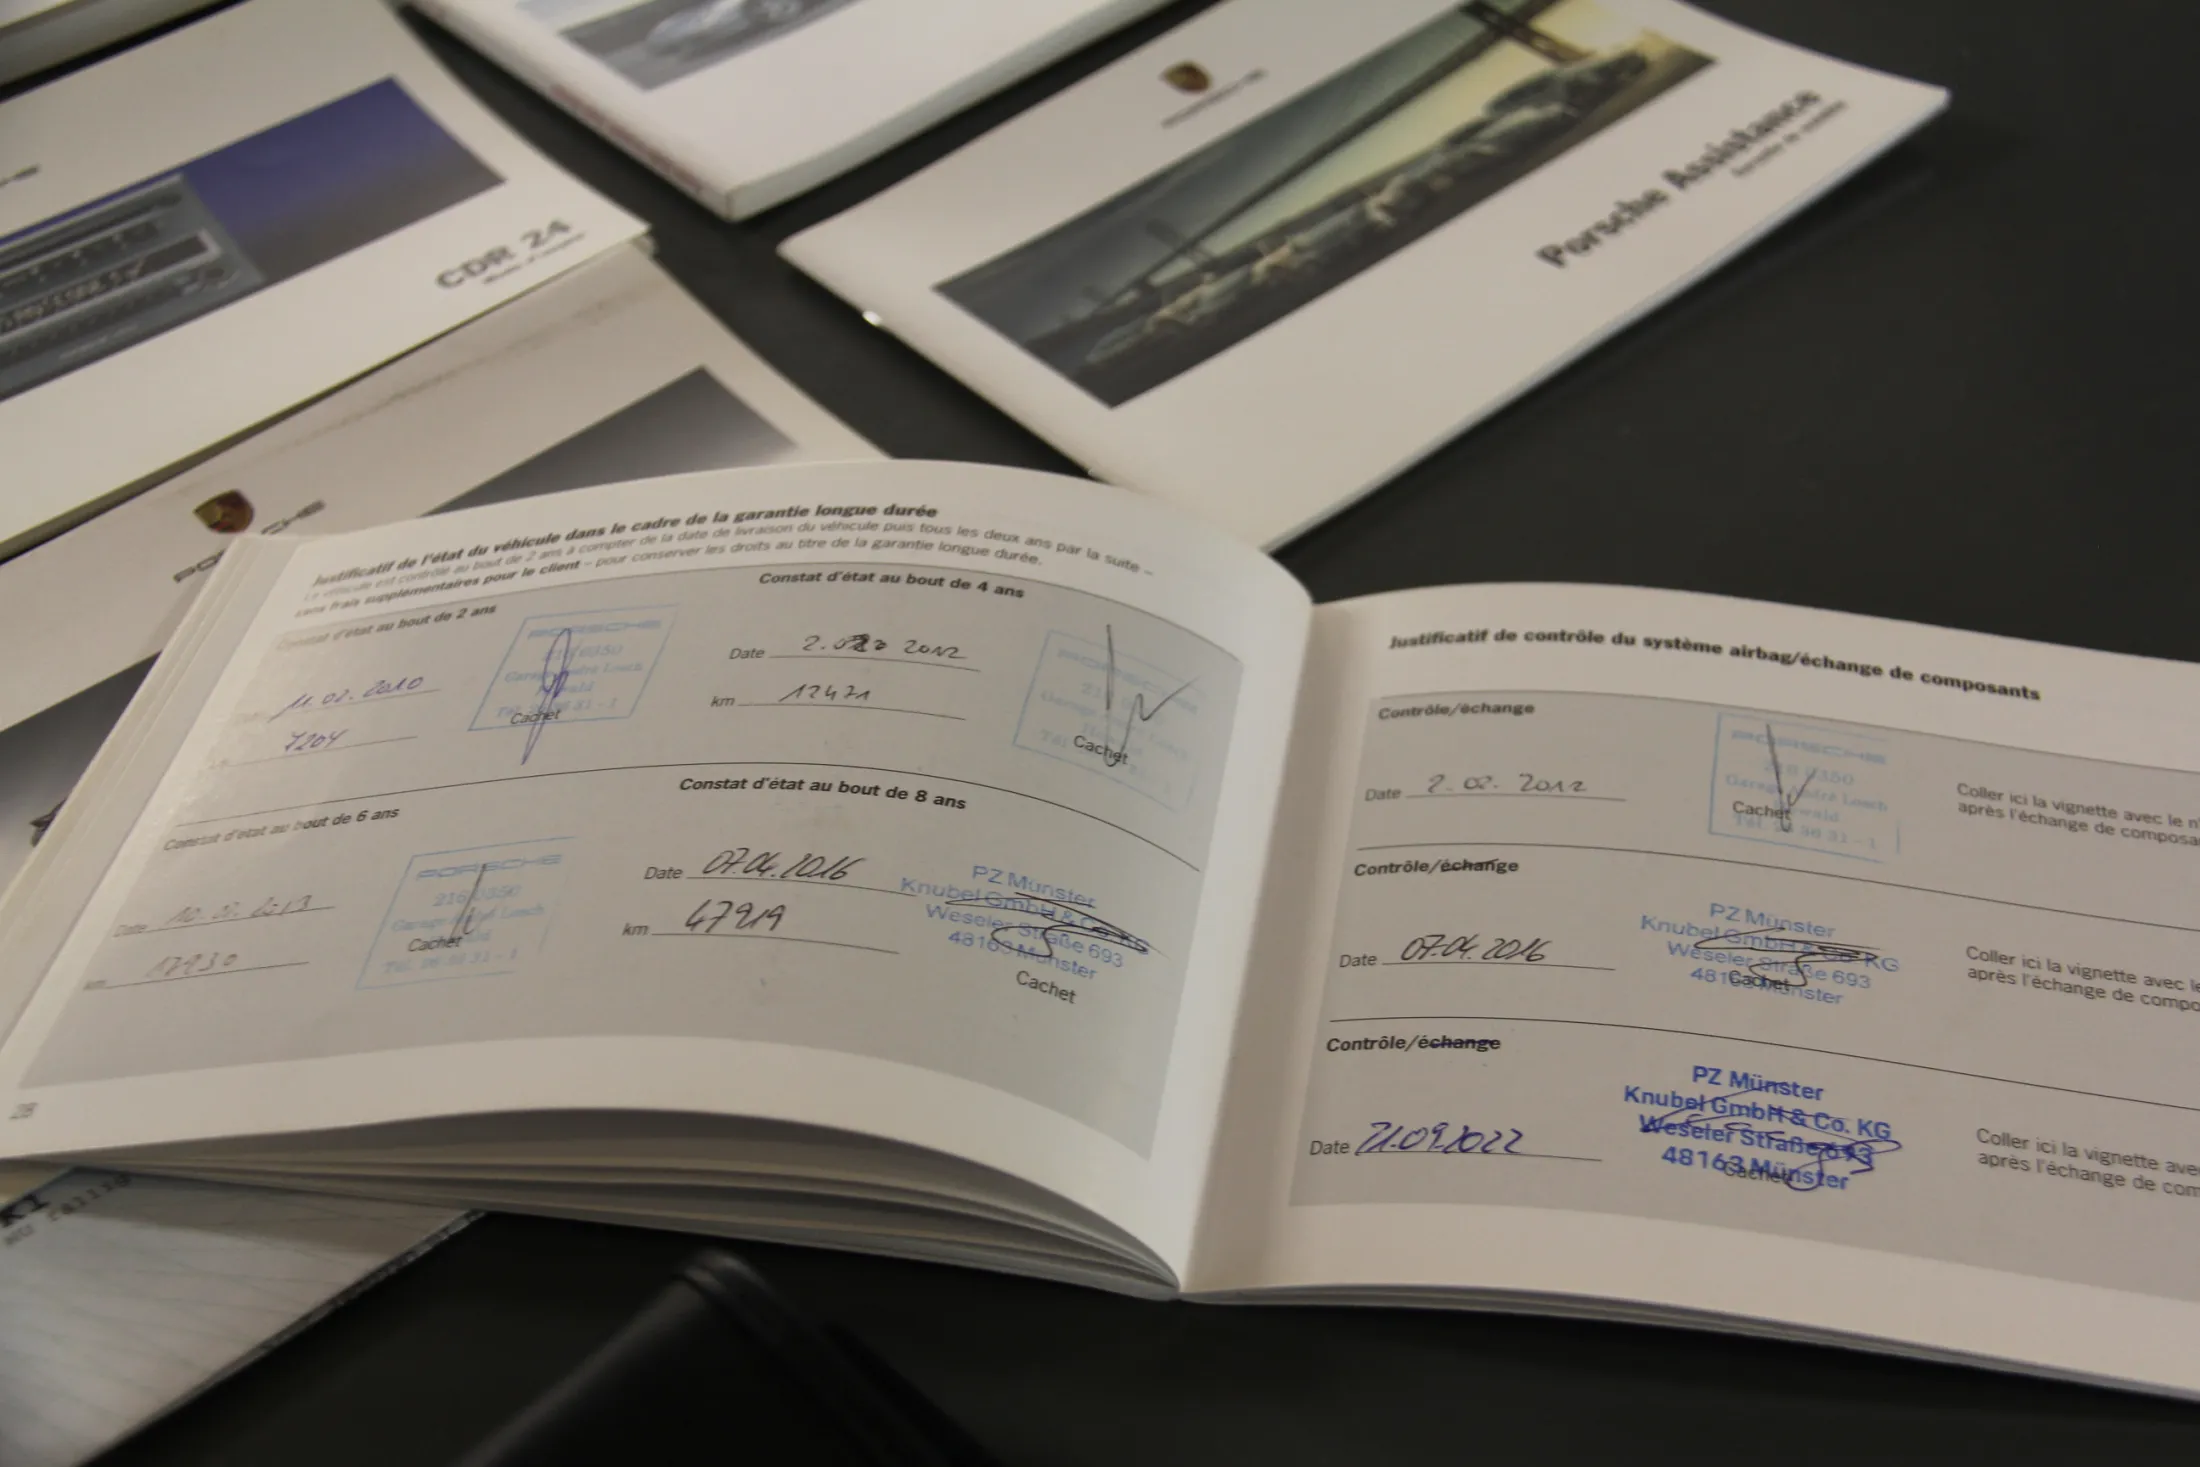 CDR 24
PORSCHE
Porsche Assistance
PORSCHE
Justificatif de l'état du véhicule dans le cadre de la garantie longue durée
Le véhicule est contrôlé au bout de 2 ans à compter de la date de livraison du véhicule puis tous les deux ans par la suite –
sans frais supplémentaires pour le client – pour conserver les droits au titre de la garantie longue durée.
Constat d'état au bout de 2 ans
11.02.2010
7204
PORSCHE
216 0350
Garage André Losch
Cachet
Constat d'état au bout de 4 ans
Date 2.02 2012
km 12471
PORSCHE
Garage André Losch
Cachet
Constat d'état au bout de 6 ans
Date 2013
km 17930
PORSCHE
216 0350
Garage André Losch
Cachet
Constat d'état au bout de 8 ans
Date 07.04.2016
km 47919
PZ Münster
Knubel GmbH & Co. KG
Weseler Straße 693
48163 Münster
Cachet
28
Justificatif de contrôle du système airbag/échange de composants
Contrôle/échange
Date 2.02.2012
PORSCHE
216 0350
Garage André Losch
Cachet
Coller ici la vignette avec le n°
après l'échange de composa
Contrôle/échange
Date 07.04.2016
PZ Münster
Knubel GmbH & Co. KG
Weseler Straße 693
48163 Münster
Cachet
Coller ici la vignette avec le
après l'échange de compo
Contrôle/échange
Date 21.09.2022
PZ Münster
Knubel GmbH & Co. KG
Weseler Straße 693
48163 Münster
Cachet
Coller ici la vignette avec
après l'échange de com